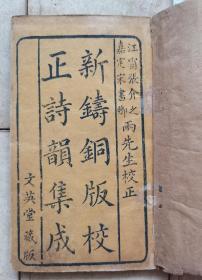 江甯張介之
嘉定宋書卿
兩先生校正
新鑄銅版校
正詩韻集成
文英堂藏版